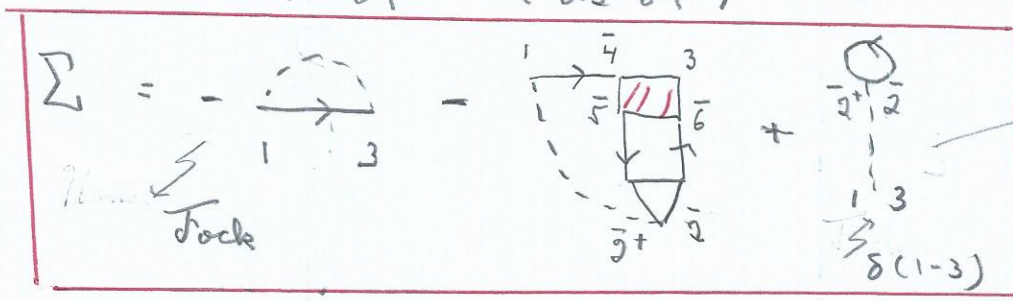 Σ = - - +
1 4̄ 3
5̄ 6̄
2̄+ 2̄
1 3
2̄+ 2̄
1 3
Fock
δ(1-3)